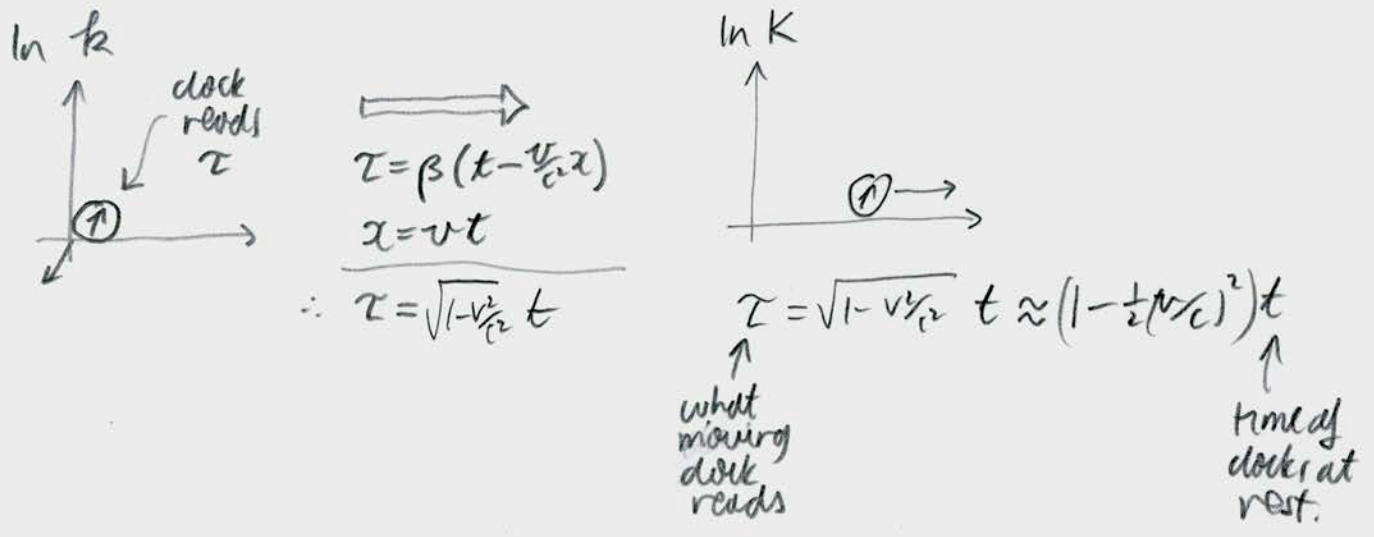 In k
clock
reads
τ
τ = β (t − v/c² x)
x = v t
∴ τ = √1−v²/c² t
In K
τ = √1− v²/c² t ≈ (1−½(v/c)²)t
what
moving
clock
reads
time of
clocks at
rest.